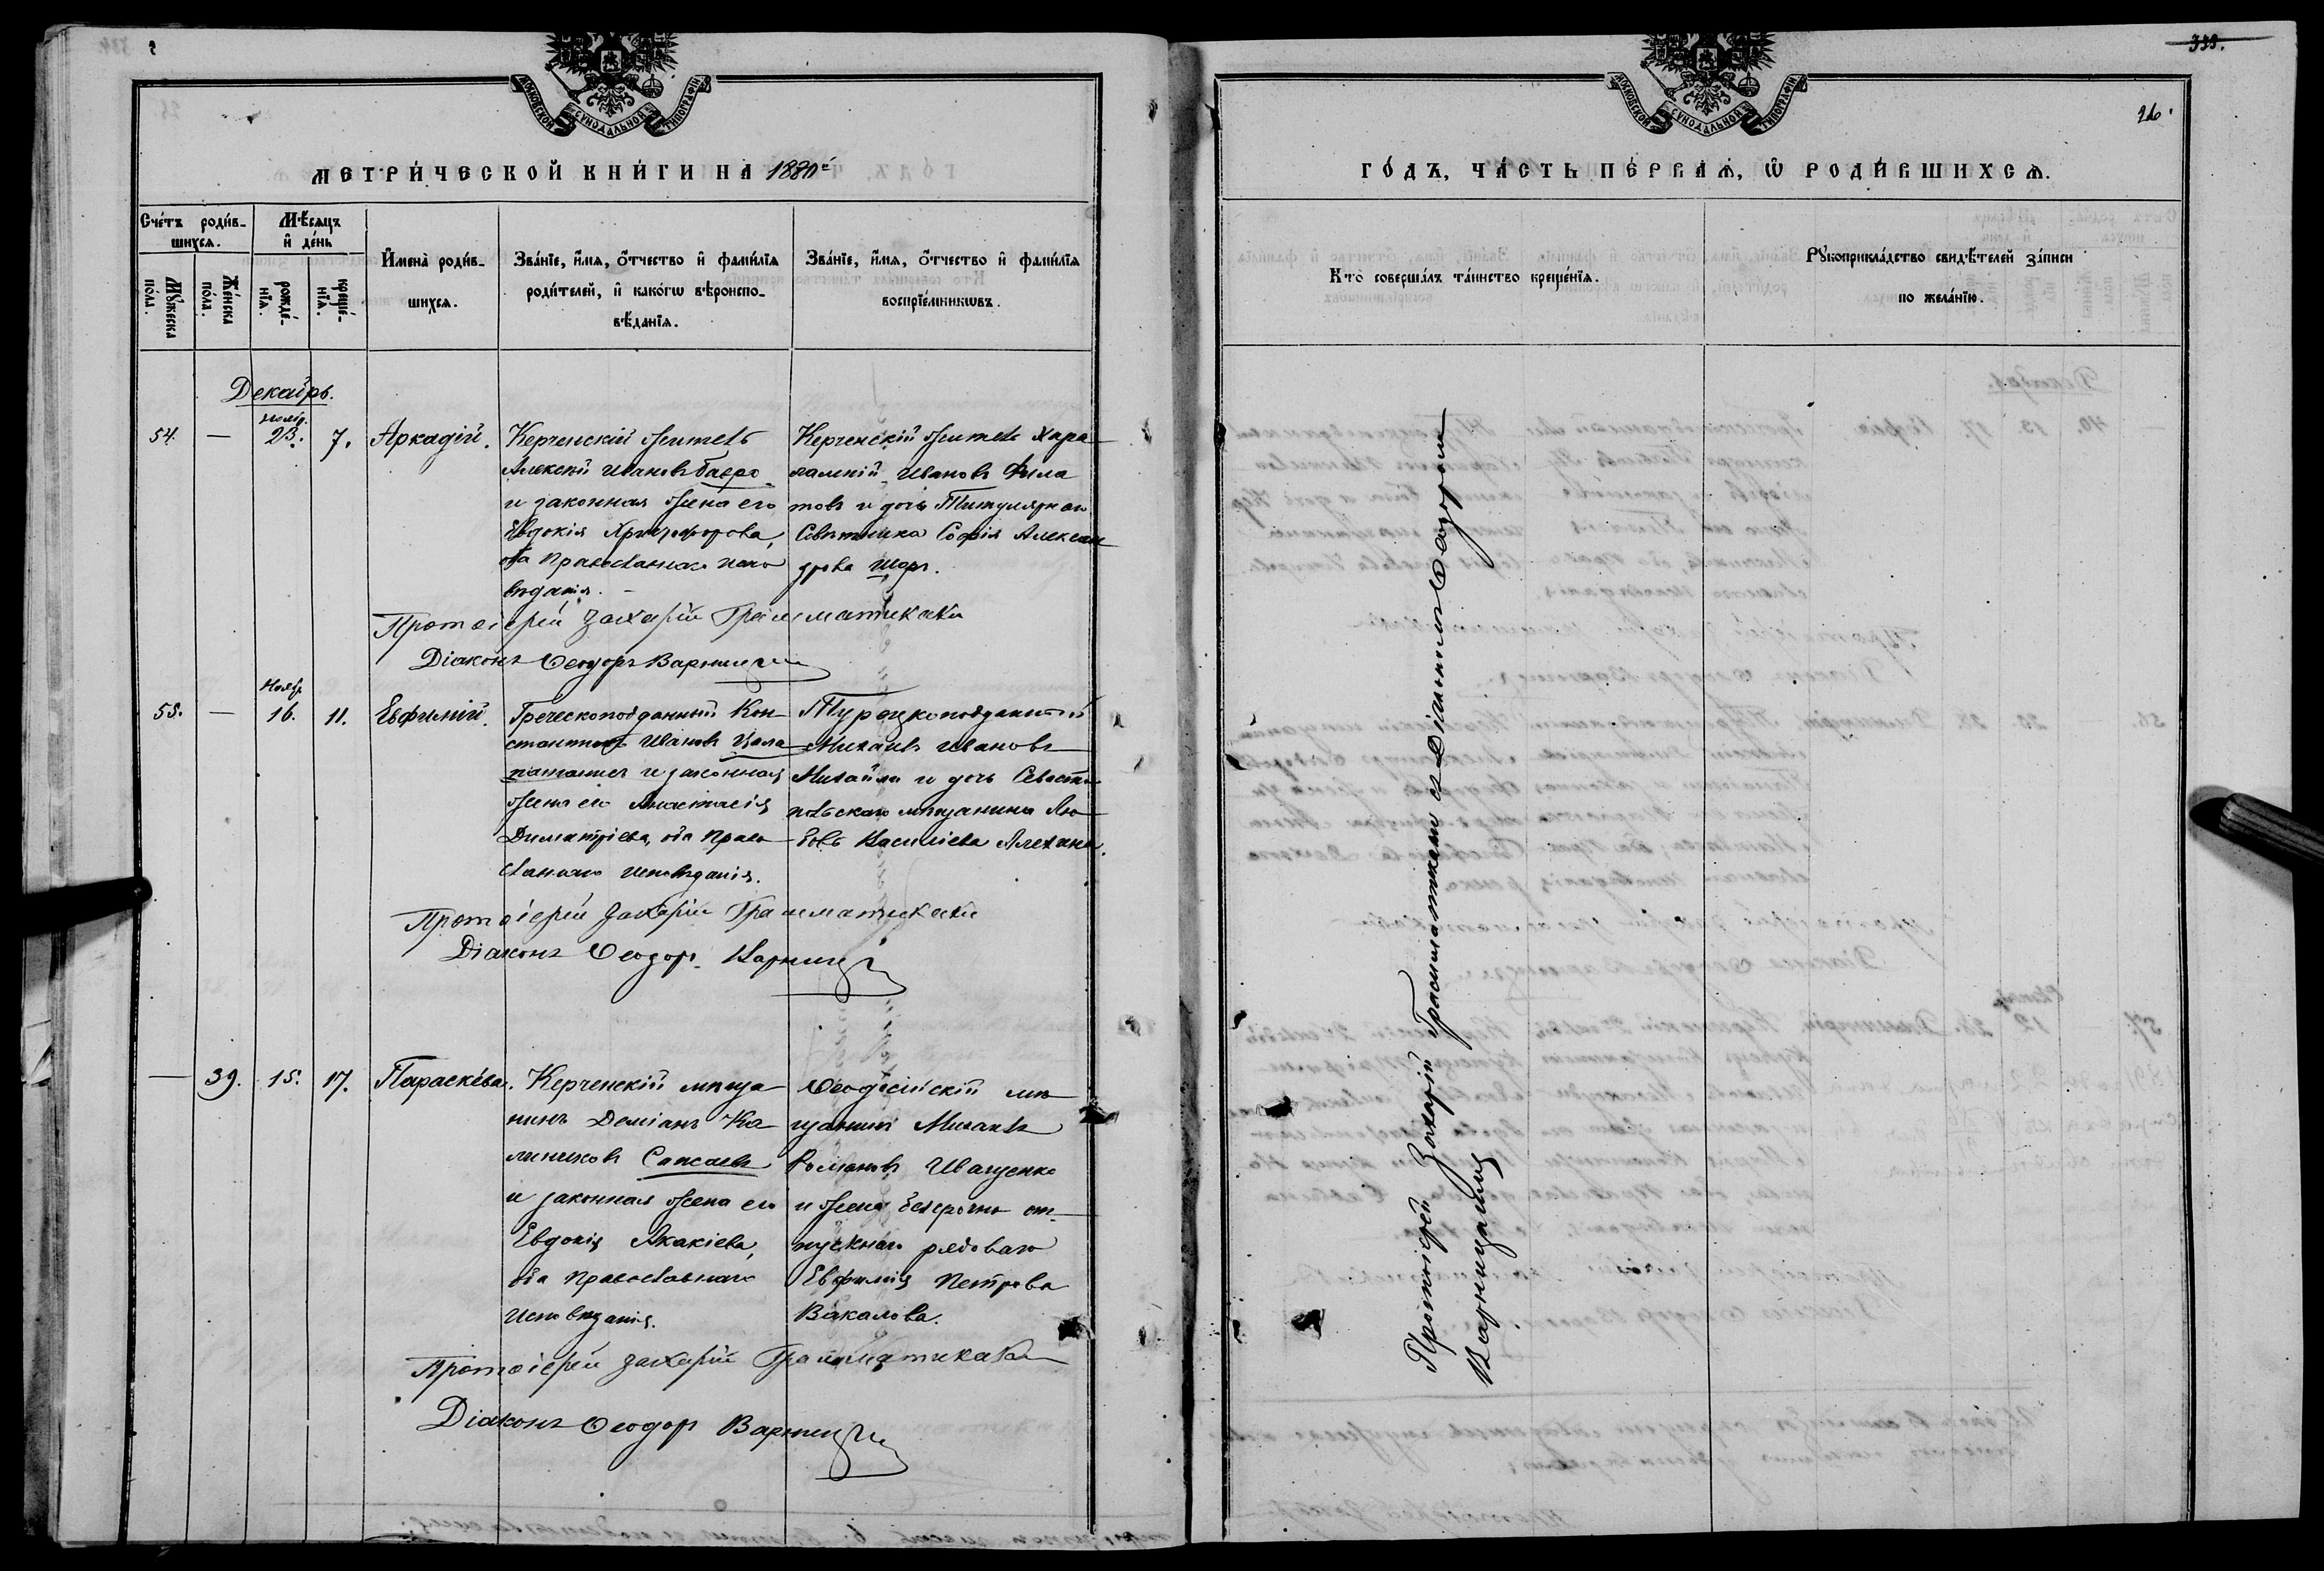 МОСКОВСКОЙ СѴНОДАЛЬНОЙ ТИПОГРАФІИ
МЕТРИ́ЧЕСКОЙ КНИ́ГИ НА 1880й
Сче́тъ роди́в-
шихсѧ.
Мꙋ́жеска по́ла.
Же́нска по́ла.
Мѣ́сѧцъ
и҆ де́нь
рожде́-
нїѧ.
креще́-
нїѧ.
И҆мена̀ роди́в-
шихсѧ.
Зва́нїе, и҆́мѧ, ѻ҆́тчество и҆ фами́лїѧ
роди́телей, и҆ како́гѡ вѣроиспо-
вѣ́данїѧ.
Зва́нїе, и҆́мѧ, ѻ҆́тчество и҆ фами́лїѧ
воспрїе́мникѡвъ.
Декабрь.
54. — 23. 7. Аркадій.
Керченскій житель
Алексѣй Ивановъ
и законная жена его
Евдокія Христофорова,
оба Православнаго испо
вѣданія.
Керченскій житель Хара
лампій Ивановъ Фила
товъ и дочь Титулярнаго
Совѣтника Софія Алексан
дрова
Протоіерей Захарій Грамматикаки
Діаконъ Ѳеодоръ Варницкій
55. — Нояб. 16. 11. Евфимій.
Греческоподданный Кон
стантинъ Ивановъ
и законная
жена его Анастасія
Димитріева, оба Право
славнаго исповѣданія.
Турецкоподданный
Михаилъ Ивановъ
Михайли и дочь Севасто
польскаго мѣщанина Лю
бовь Василіева
Протоіерей Захарій Грамматикаки
Діаконъ Ѳеодоръ Варницкій
— 39. 15. 17. Параскева.
Керченскій мѣща
нинъ Деміанъ Ка
линиковъ Сапсаевъ
и законная жена его
Евдокія Акакіева,
оба Православнаго
исповѣданія.
Ѳеодосійскій мѣ
щанинъ Михаилъ
Романовъ Иващенко
и жена безсрочно от
пускнаго рядоваго
Евфимія Петрова
Вакалова.
Протоіерей Захарій Грамматикаки
Діаконъ Ѳеодоръ Варницкій
333.
26.
МОСКОВСКОЙ СѴНОДАЛЬНОЙ ТИПОГРАФІИ
ГО́ДЪ, ЧА́СТЬ ПЕ́РВАѦ, Ѽ РОДИ́ВШИХСѦ.
Кто̀ соверша́лъ та́инство креще́нїѧ.
Рꙋкоприкла́дство свидѣ́телей за́писи
по жела́нїю.
Протоіерей Захарій Грамматикаки съ Діакономъ Ѳеодоромъ
Варницкимъ